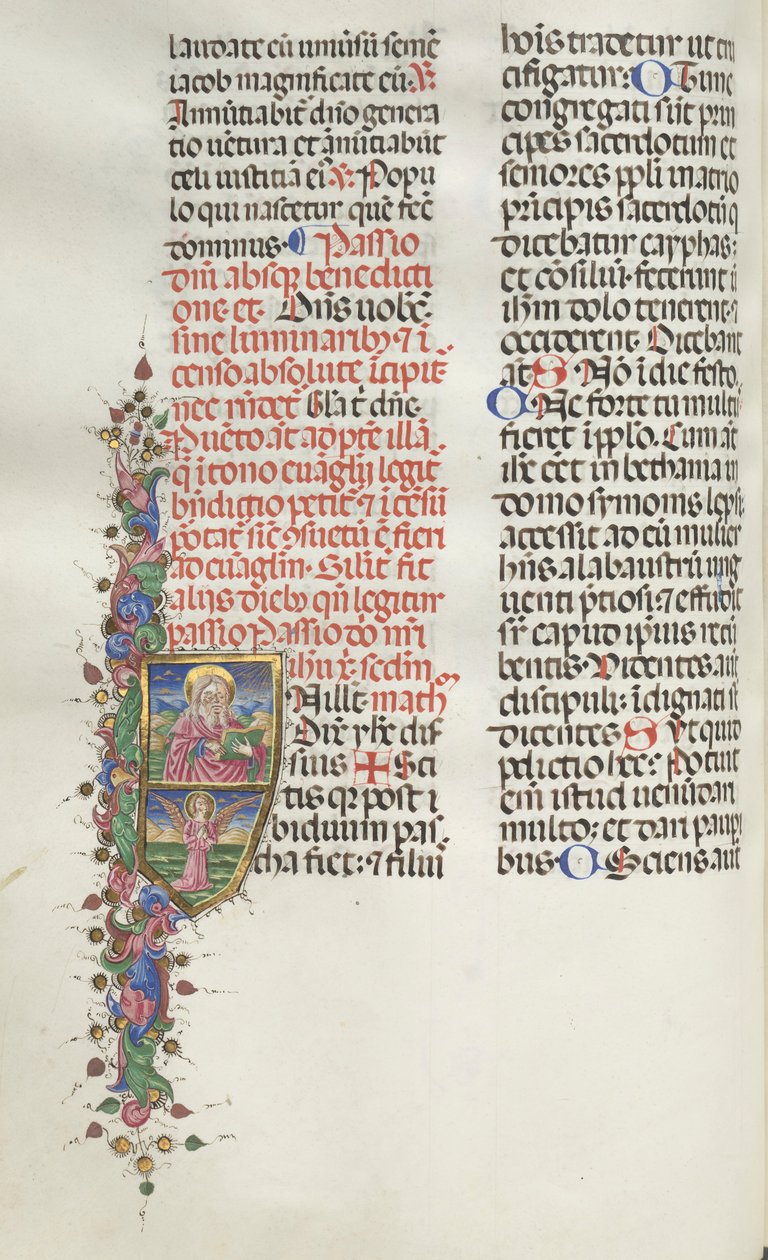 laudate eū univ̄sū semē
iacob magnificate eū: ℣
Annūtiabit̄ dn̄o genera
tio uētura et ānūtiabūt
celi iustitiā ei᷒ ℣ Popu
lo qui nascetur quē fec̄
dominus· Passio
dn̄i absq̧ benedicti
one· et· Dn̄s uobc̄·
sine luminarib᷒· ⁊ ī
censo absolute īcipit̄
nec rn̄det̄ Gl̄a t̄ dn̄e·
Puēto āt ad p̄tē illā
q̄ ī tono euāglij legit̄
bn̄dictio petit̄ ⁊ īcēsū
portat̄ sic̄ ꝯsuetū ē fieri
ad euāgliū· Silit̄ fit
alijs dieb᷒ qn̄ legitur
passio Passio dō nr̄i
ihū xp̄i scd̄m
N illē· math᷒
Dix̄ yħc dis
suis ✠ Sci
tis q̧ post ī
biduum pas
cha fiet: ⁊ filiū
hoīs tradetur ut cru
cifigatur: C Tunc
congregati sūt prin
cipes sacerdotum et
seniores pp̄li in atrio
prīcipis sacerdotū q̄
dicebatur cayphas:
et cōsiliū· fecerunt ū
ihm̄ dolo tenerent· ⁊
occiderent· Dicebant
āt· S· Nō ī die festo·
C· Ne forte tumult᷒
fieret ī pp̄lo. Cum āt
ih̄c eēt in bethania in
domo symonis lep̄si·
accessit ad eū mulier
hn̄s alabaustrū ung
uenti p̄tiosi· ⁊ effudit
sr̄ caput ip̄ius recū
bentis· Videntes aūt
discipuli: īdignati st̄
dicentes S Vt quid
pdictio hec: Potuit
em̄ istud uenūdari
multo; et dari paup̄i
bus· C Sciens aūt